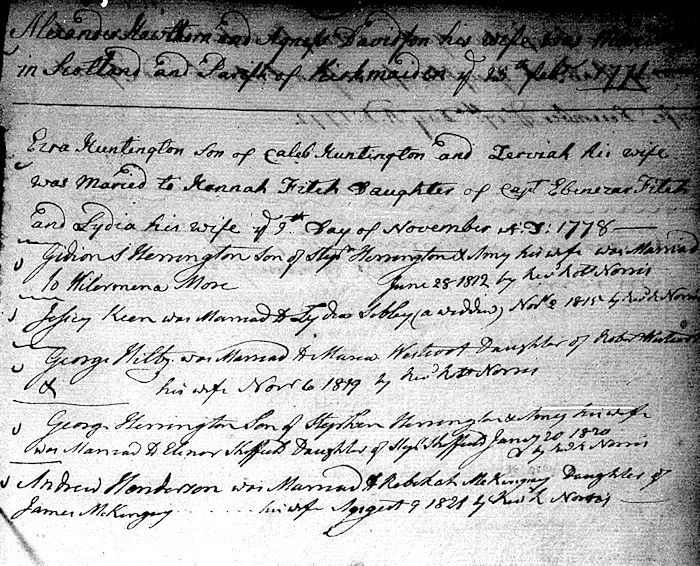 Alexander Hawthorn and Agness Davidson his wife was
in Scotland and Parish of Kirkmaiden ye 25th febr 1771
Ezra Huntington Son of Caleb Huntington and Zerviah his wife
was Maried to Hannah Fitch Daughter of Capt Ebenezar Fitch
and Lydia his wife ye 9th Day of November A:D: 1778
Gidion S Herrington Son of Stepn Herrington & Amy his wife was Married
to Hilormena More June 28 1812 by Revd Robt Norris
Keen was Married to Lydia Sibley (a widdow) Novr 2 1815 by Revd R Norris
George Hilby was Married to Maria Westcoot Daughter of Robert Westcoot
& his wife Novr 6 1819 by Revd Rot Norris
George Herrington Son of Stephen Herrington & Amey his wife
was Married to Elinor Sheffield Daughter of Stepn Sheffield Jany 20 1820
by Revd R Norris
Andrew Henderson was Married to Rebekah McKingey Daughter of
James McKingey his wife August 9 1821 by Revd R Norris